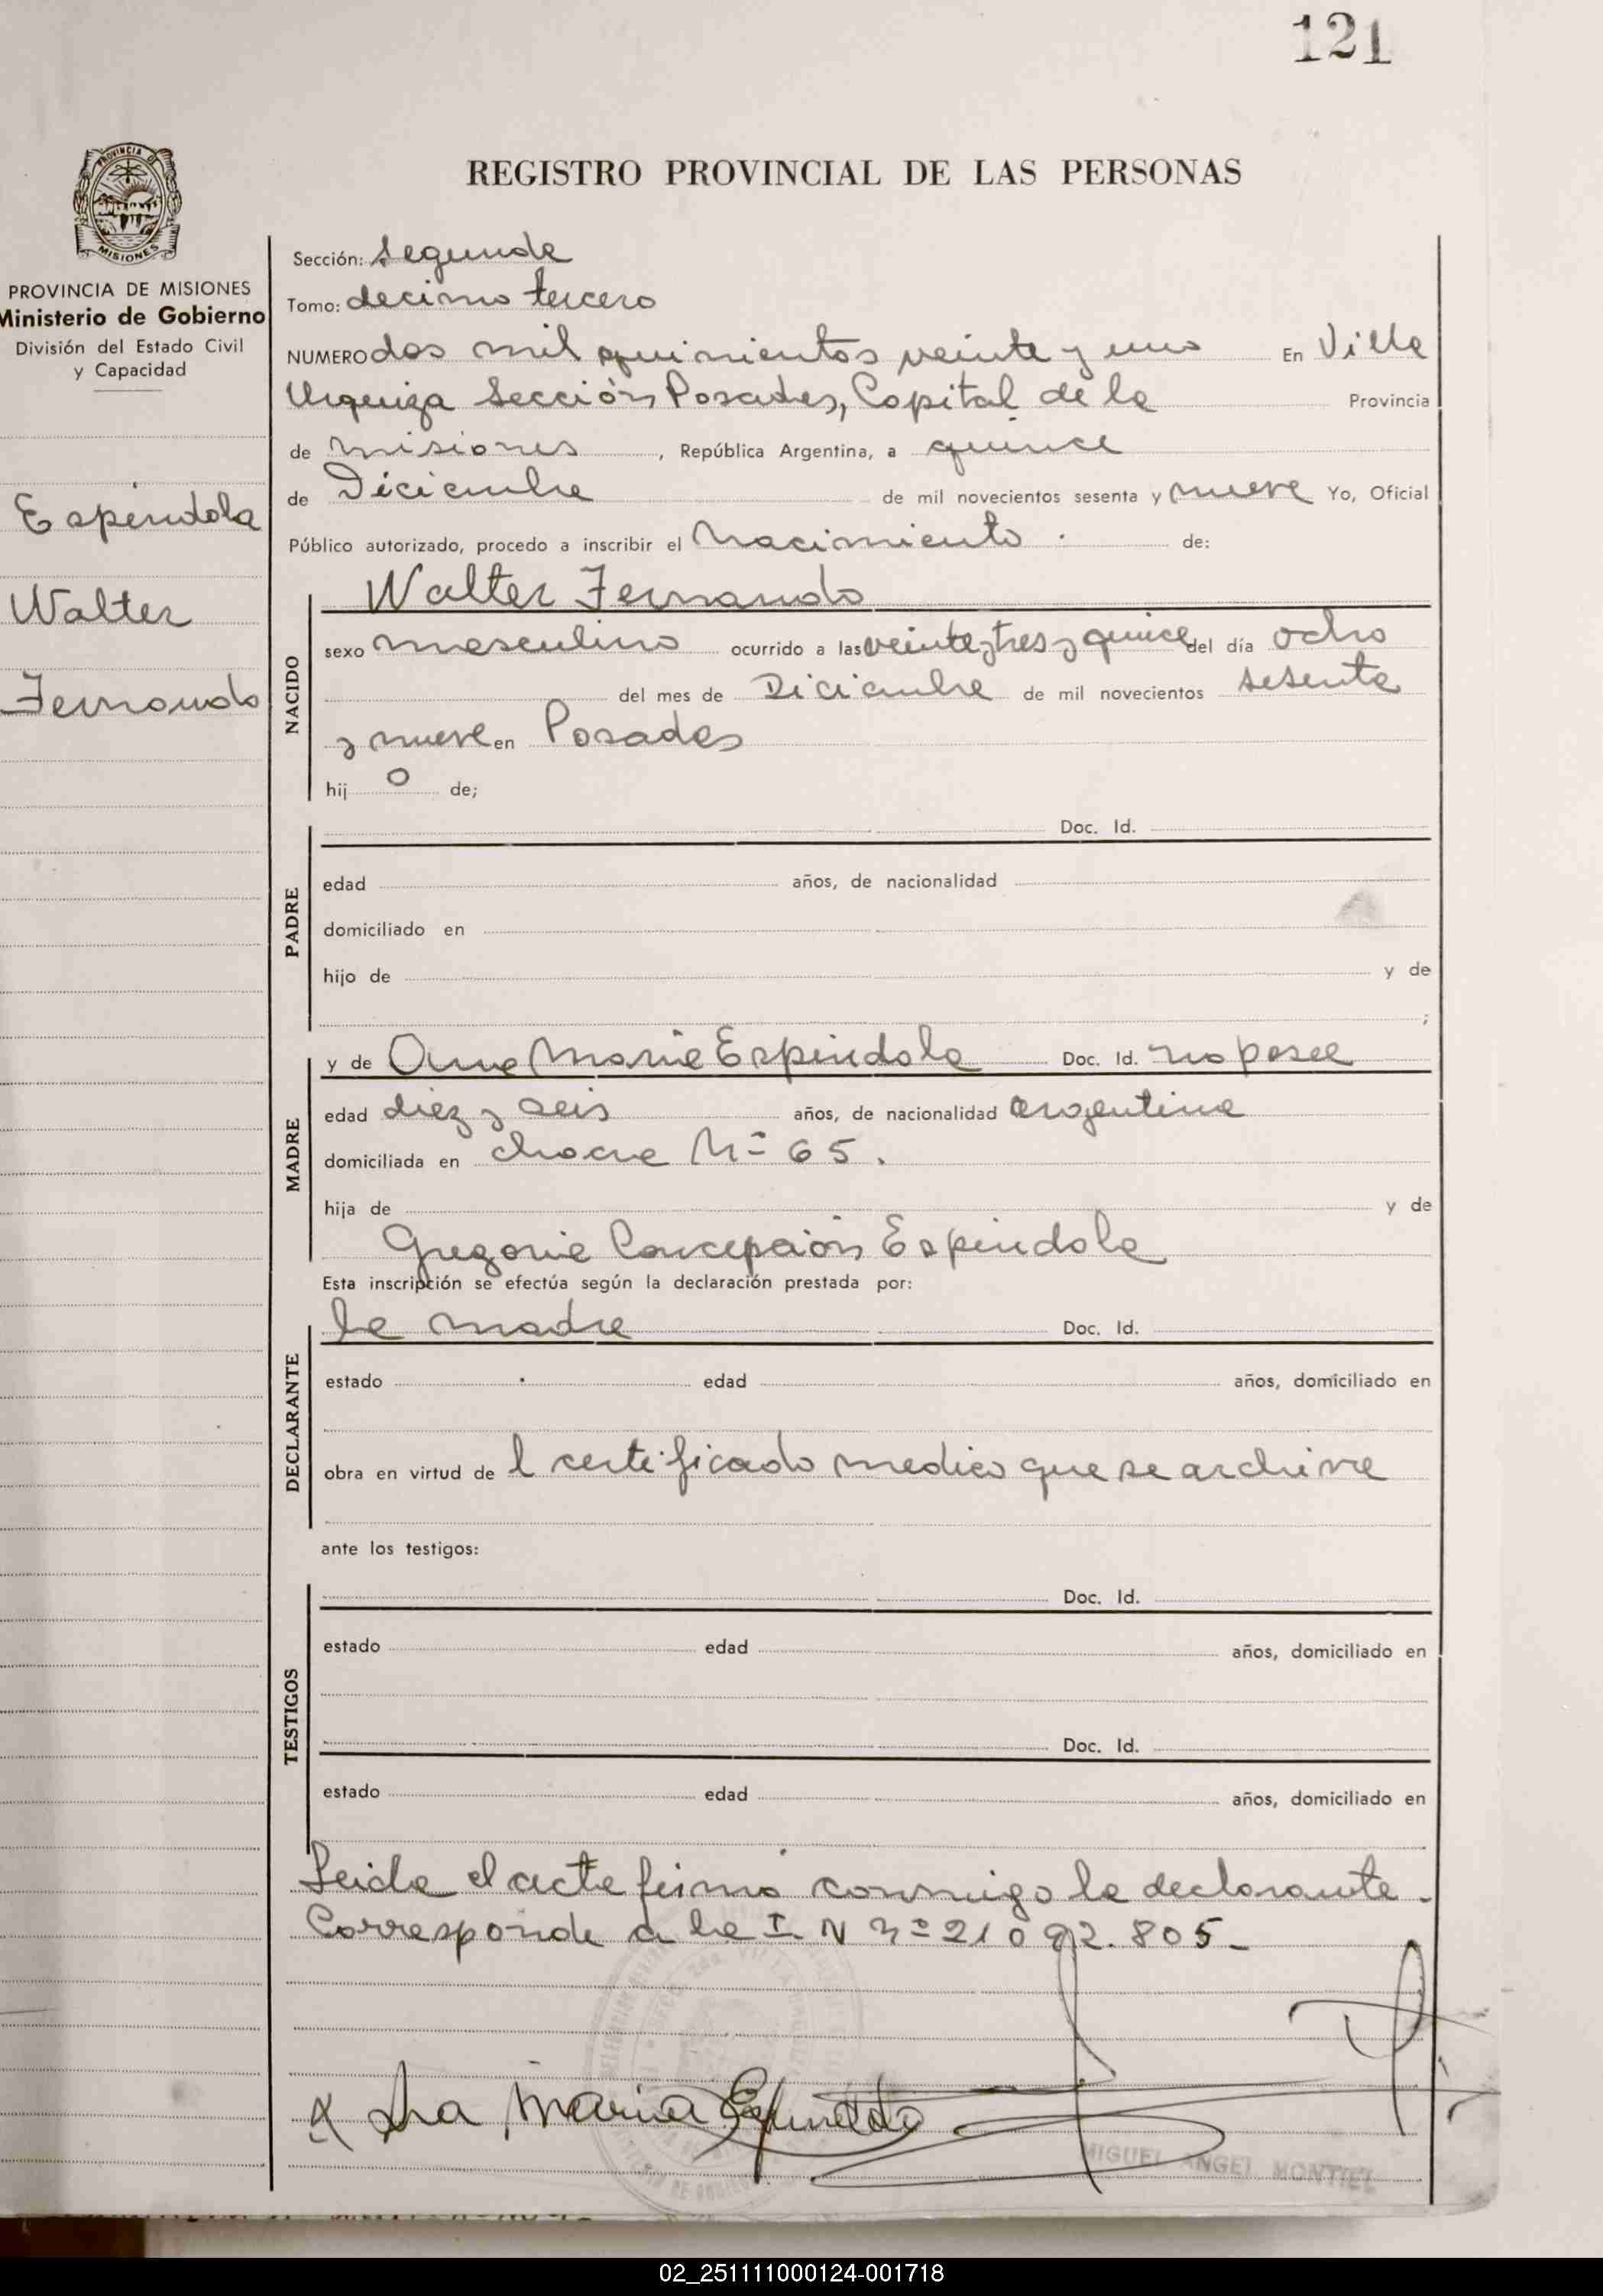 121
REGISTRO PROVINCIAL DE LAS PERSONAS
PROVINCIA DE MISIONES
Ministerio de Gobierno
División del Estado Civil
y Capacidad
Espindola
Walter
Fernando
Sección: Segunda
Tomo: decimo tercero
NUMERO dos mil quinientos veinte y uno En Villa
Urquiza Sección Posadas, Capital de la Provincia
de Misiones, República Argentina, a quince
de Diciembre de mil novecientos sesenta y nueve Yo, Oficial
Público autorizado, procedo a inscribir el Nacimiento de:
NACIDO
Walter Fernando
sexo masculino ocurrido a las veinte y tres y quince del día ocho
del mes de Diciembre de mil novecientos sesenta
y nueve en Posadas
hij o de;
PADRE
Doc. Id.
edad años, de nacionalidad
domiciliado en
hijo de y de
;
MADRE
y de Ana Maria Espindola Doc. Id. no posee
edad diez y seis años, de nacionalidad argentina
domiciliada en chacra Nº 65.
hija de y de
Gregoria Concepción Espindola
Esta inscripción se efectúa según la declaración prestada por:
DECLARANTE
la madre Doc. Id.
estado edad años, domiciliado en
obra en virtud de l certificado medico que se archiva
ante los testigos:
TESTIGOS
Doc. Id.
estado edad años, domiciliado en
Doc. Id.
estado edad años, domiciliado en
Leida el acta firma conmigo la declarante.
Corresponde a la I. N nº 21 092.805-
Maria Espindola
MIGUEL ANGEL MONTIEL
02_251111000124-001718